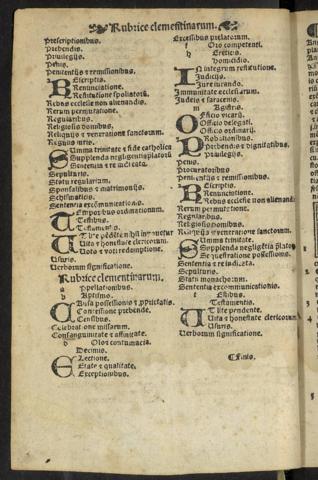 Rubrice clementinarum.
Prescriptionibus.
Prebendis.
Privilegijs.
Penis.
Penitentijs ⁊ remissionibus.
Rescriptis.
Renunciatione.
Restitutione spoliatorũ.
Rebus ecclesie non alienandis.
Rerum permutatione.
Regularibus.
Religiosis domibus.
Reliquijs ⁊ veneratione sanctorum.
Regulis iuris.
Summa trinitate ⁊ fide catholica
Supplenda negligentia platorũ
Sententia ⁊ re iudicata.
Sepulturis.
Statu regularium.
Sponsalibus ⁊ matrimonijs.
Schismaticis.
Sententia excommunicationis.
Temporibus ordinationum.
Testibus.
Testamentis.
Vita ⁊ honestate clericorum.
Voto ⁊ voti redemptione.
Usuris.
Verborum significatione.
Rubrice clementinarum.
a Appellationibus.
b Baptismo.
Causa possessionis ⁊ p̱prietatis.
Concessione prebende.
Censibus.
Celebratione missarum.
Consanguinitate ⁊ affinitate.
d Dolo ⁊ contumacia.
Decimis.
Electione.
Etate ⁊ qualitate.
Exceptionibus.
Excessibus prelatorum.
f Foro competenti.
h Hereticis.
Homicidio.
In integrum restitutione.
Iudicijs.
Iureiurando.
Immunitate ecclesiarum.
Iudeis ⁊ saracenis.
m Magistris.
Officio vicarij.
Officio delegati.
Officio ordinarij.
Probationibus.
Prebendis ⁊ dignitatibus.
Privilegijs.
Penis.
Procuratoribus
Penitentijs ⁊ remissionibus.
Rescriptis.
Renunciatione.
Rebus ecclesie non alienandis
Rerum permutatione.
Regularibus.
Religiosis domibus.
Reliquijs ⁊ veneratione sanctorum.
Summa trinitate.
Supplenda negligẽtia platorũ
Sequestratione possessionis.
Sententia ⁊ re iudicata.
Sepulturis.
Statu monachorum.
Sententia excommunicationis.
t Testibus.
Testamentis.
Ut lite pendente.
Vita ⁊ honestate clericorum
Usuris.
Verborum significatione.
Finis.